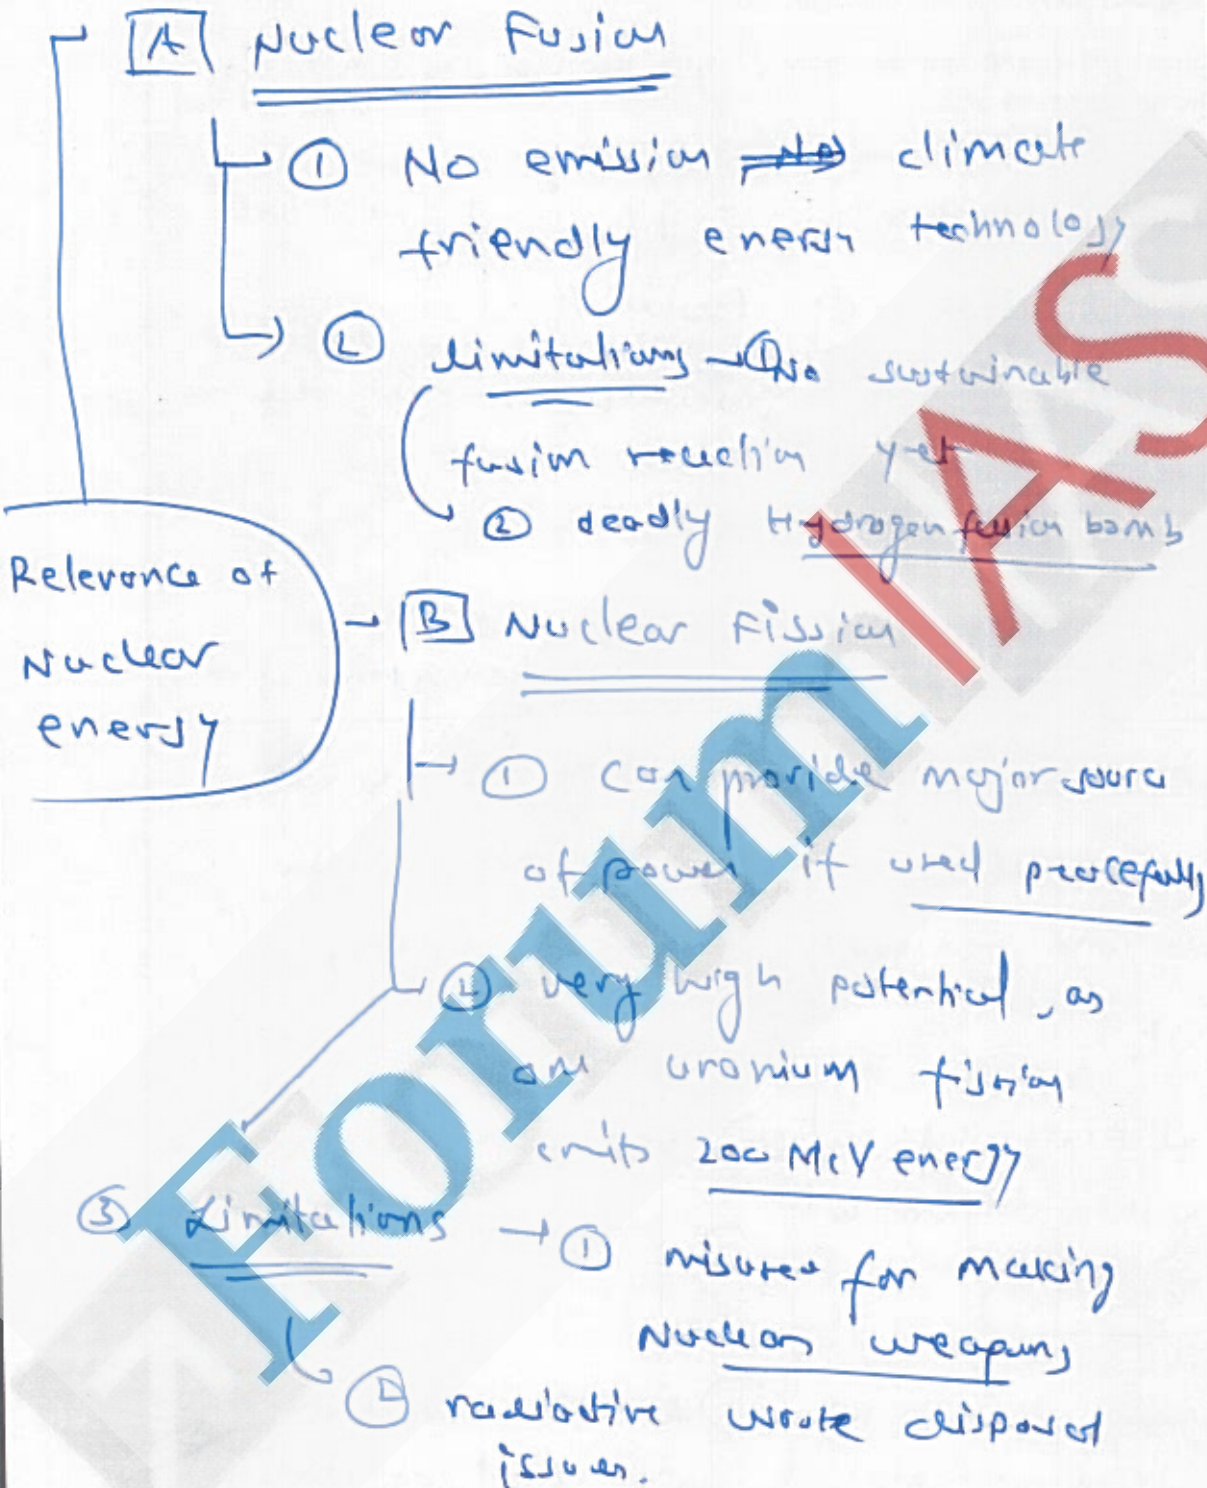 A Nuclear Fusion
① No emission climate
friendly energy technology
② limitations → ① No sustainable
fusion reaction yet
② deadly Hydrogen fusion bomb
Relevance of
Nuclear
energy
→ B Nuclear Fission
→ ① Can provide major source
of power if used peacefully
② very high potential, as
one uranium fission
emits 200 MeV energy
③ Limitations → ① misused for making
Nuclear weapons
② radioactive waste disposal
issues.
Forum IAS